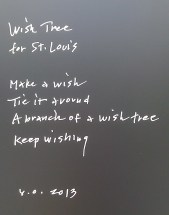 Wish Tree
for St. Louis
Make a wish
Tie it around
A branch of a wish tree
Keep wishing
y.o. 2013